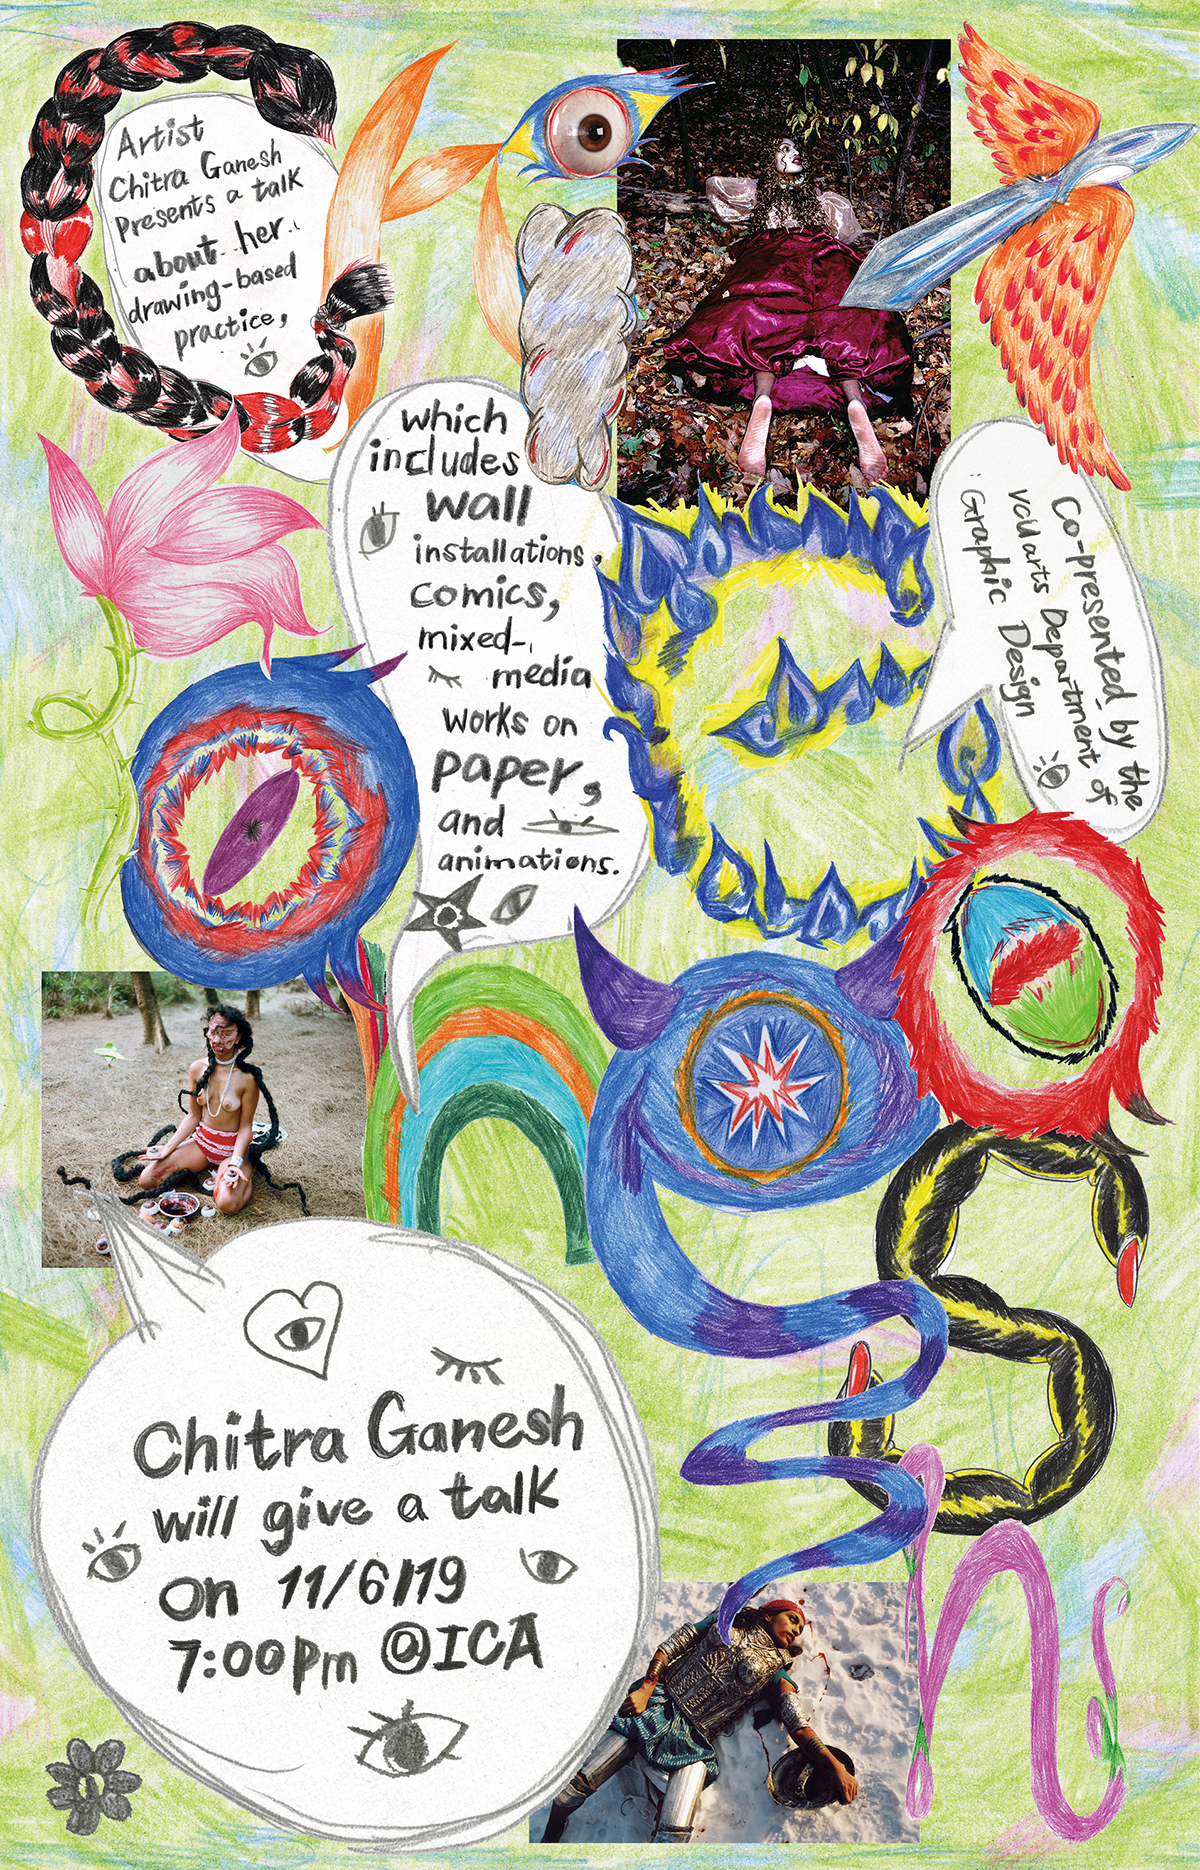 Chit
ra Ga
nesh
Artist
Chitra Ganesh
presents a talk
about her
drawing-based
practice,
which
includes
wall
installations,
comics,
mixed-
media
works on
paper,
and
animations.
Co-presented by the
vcUarts Department of
Graphic Design
Chitra Ganesh
will give a talk
on 11/6/19
7:00pm @ICA